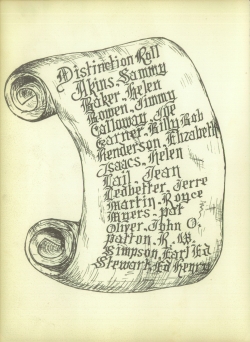 Distinction Roll
Akins, Sammy
Baker, Helen
Bowen, Jimmy
Calloway, Joe
Garner, Billy Bob
Henderson, Elizabeth
Isaacs, Helen
Lail, Jean
Ledbetter, Jerre
Martin, Royce
Myers, Pat
Oliver, John O.
Patton, R. W.
Simpson, Earl Ed
Stewart, Ed Henry